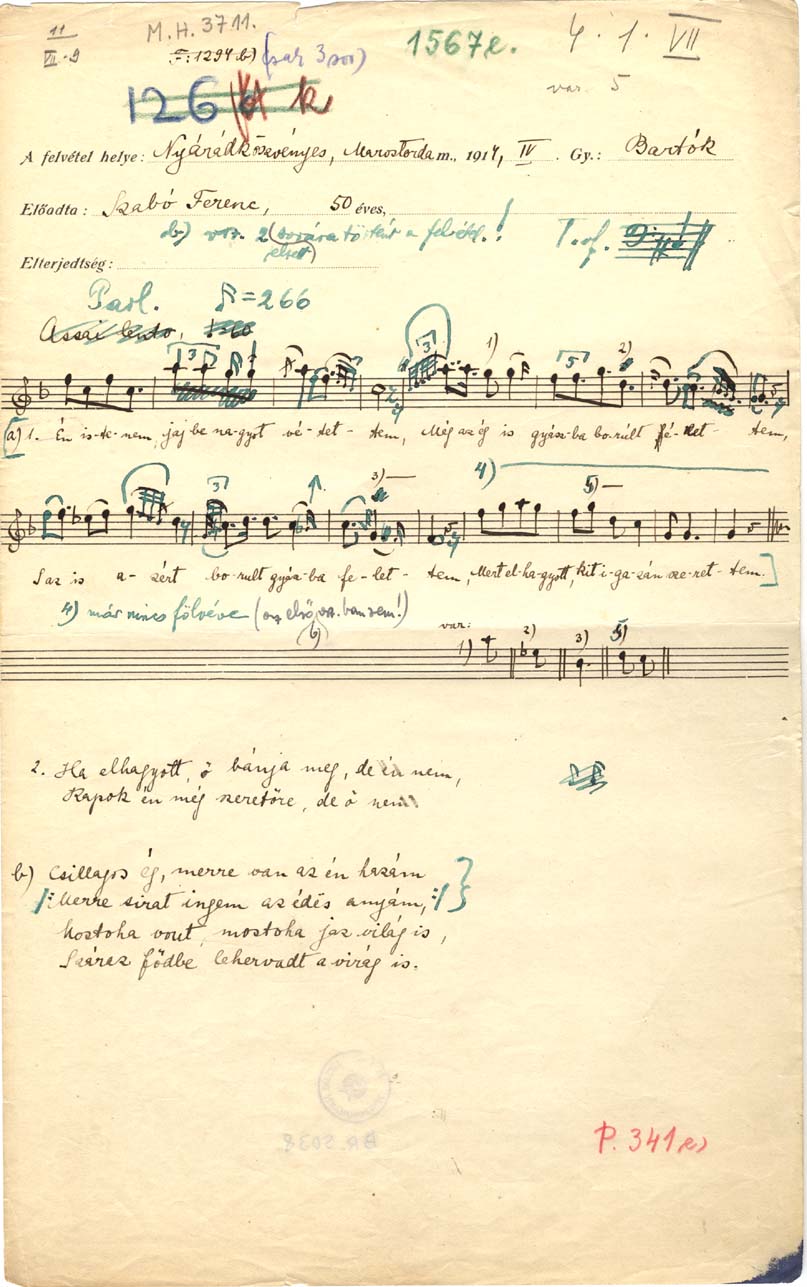 11
VII.9
M.H. 3711.
F: 1294 b) (sar 3 sor)
1567e.
4. 1. VII
var. 5
126
A felvétel helye: Nyárádköszvényes, Marostorda m., 1914, IV. Gy.: Bartók
Előadta: Szabó Ferenc, 50 éves,
b) vsz. 2 (sorára történt a felvétel!
első
T. of.
Elterjedtség:
Parl. ♪=266
Assai lento,
3 3 1) 5 2)
(a) 1. Én is-te-nem, jaj be na-gyot vé-tet-tem, Még az ég is gyász-ba bo-rúlt fe-let-tem,
3 3) 4) 5)
S az is a-zért bo-rult gyász-ba fe-let-tem, Mert el-ha-gyott, kit i-ga-zán sze-ret-tem.]
4) már nincs fölvéve (az első vsz.-ban sem!)
b)
var: 1) 2) 3) 5)
2. Ha elhagyott, ő bánja meg, de én nem,
Kapok én még szeretőre, de ő nem
b) Csillagos ég, merre van az én hazám
/: Merre sirat ingem az édes anyám, :/
Mostoha vout, mostoha jaz világ is,
Száraz födbe lehervadt a virág is.
BR. 5038
P. 341e)